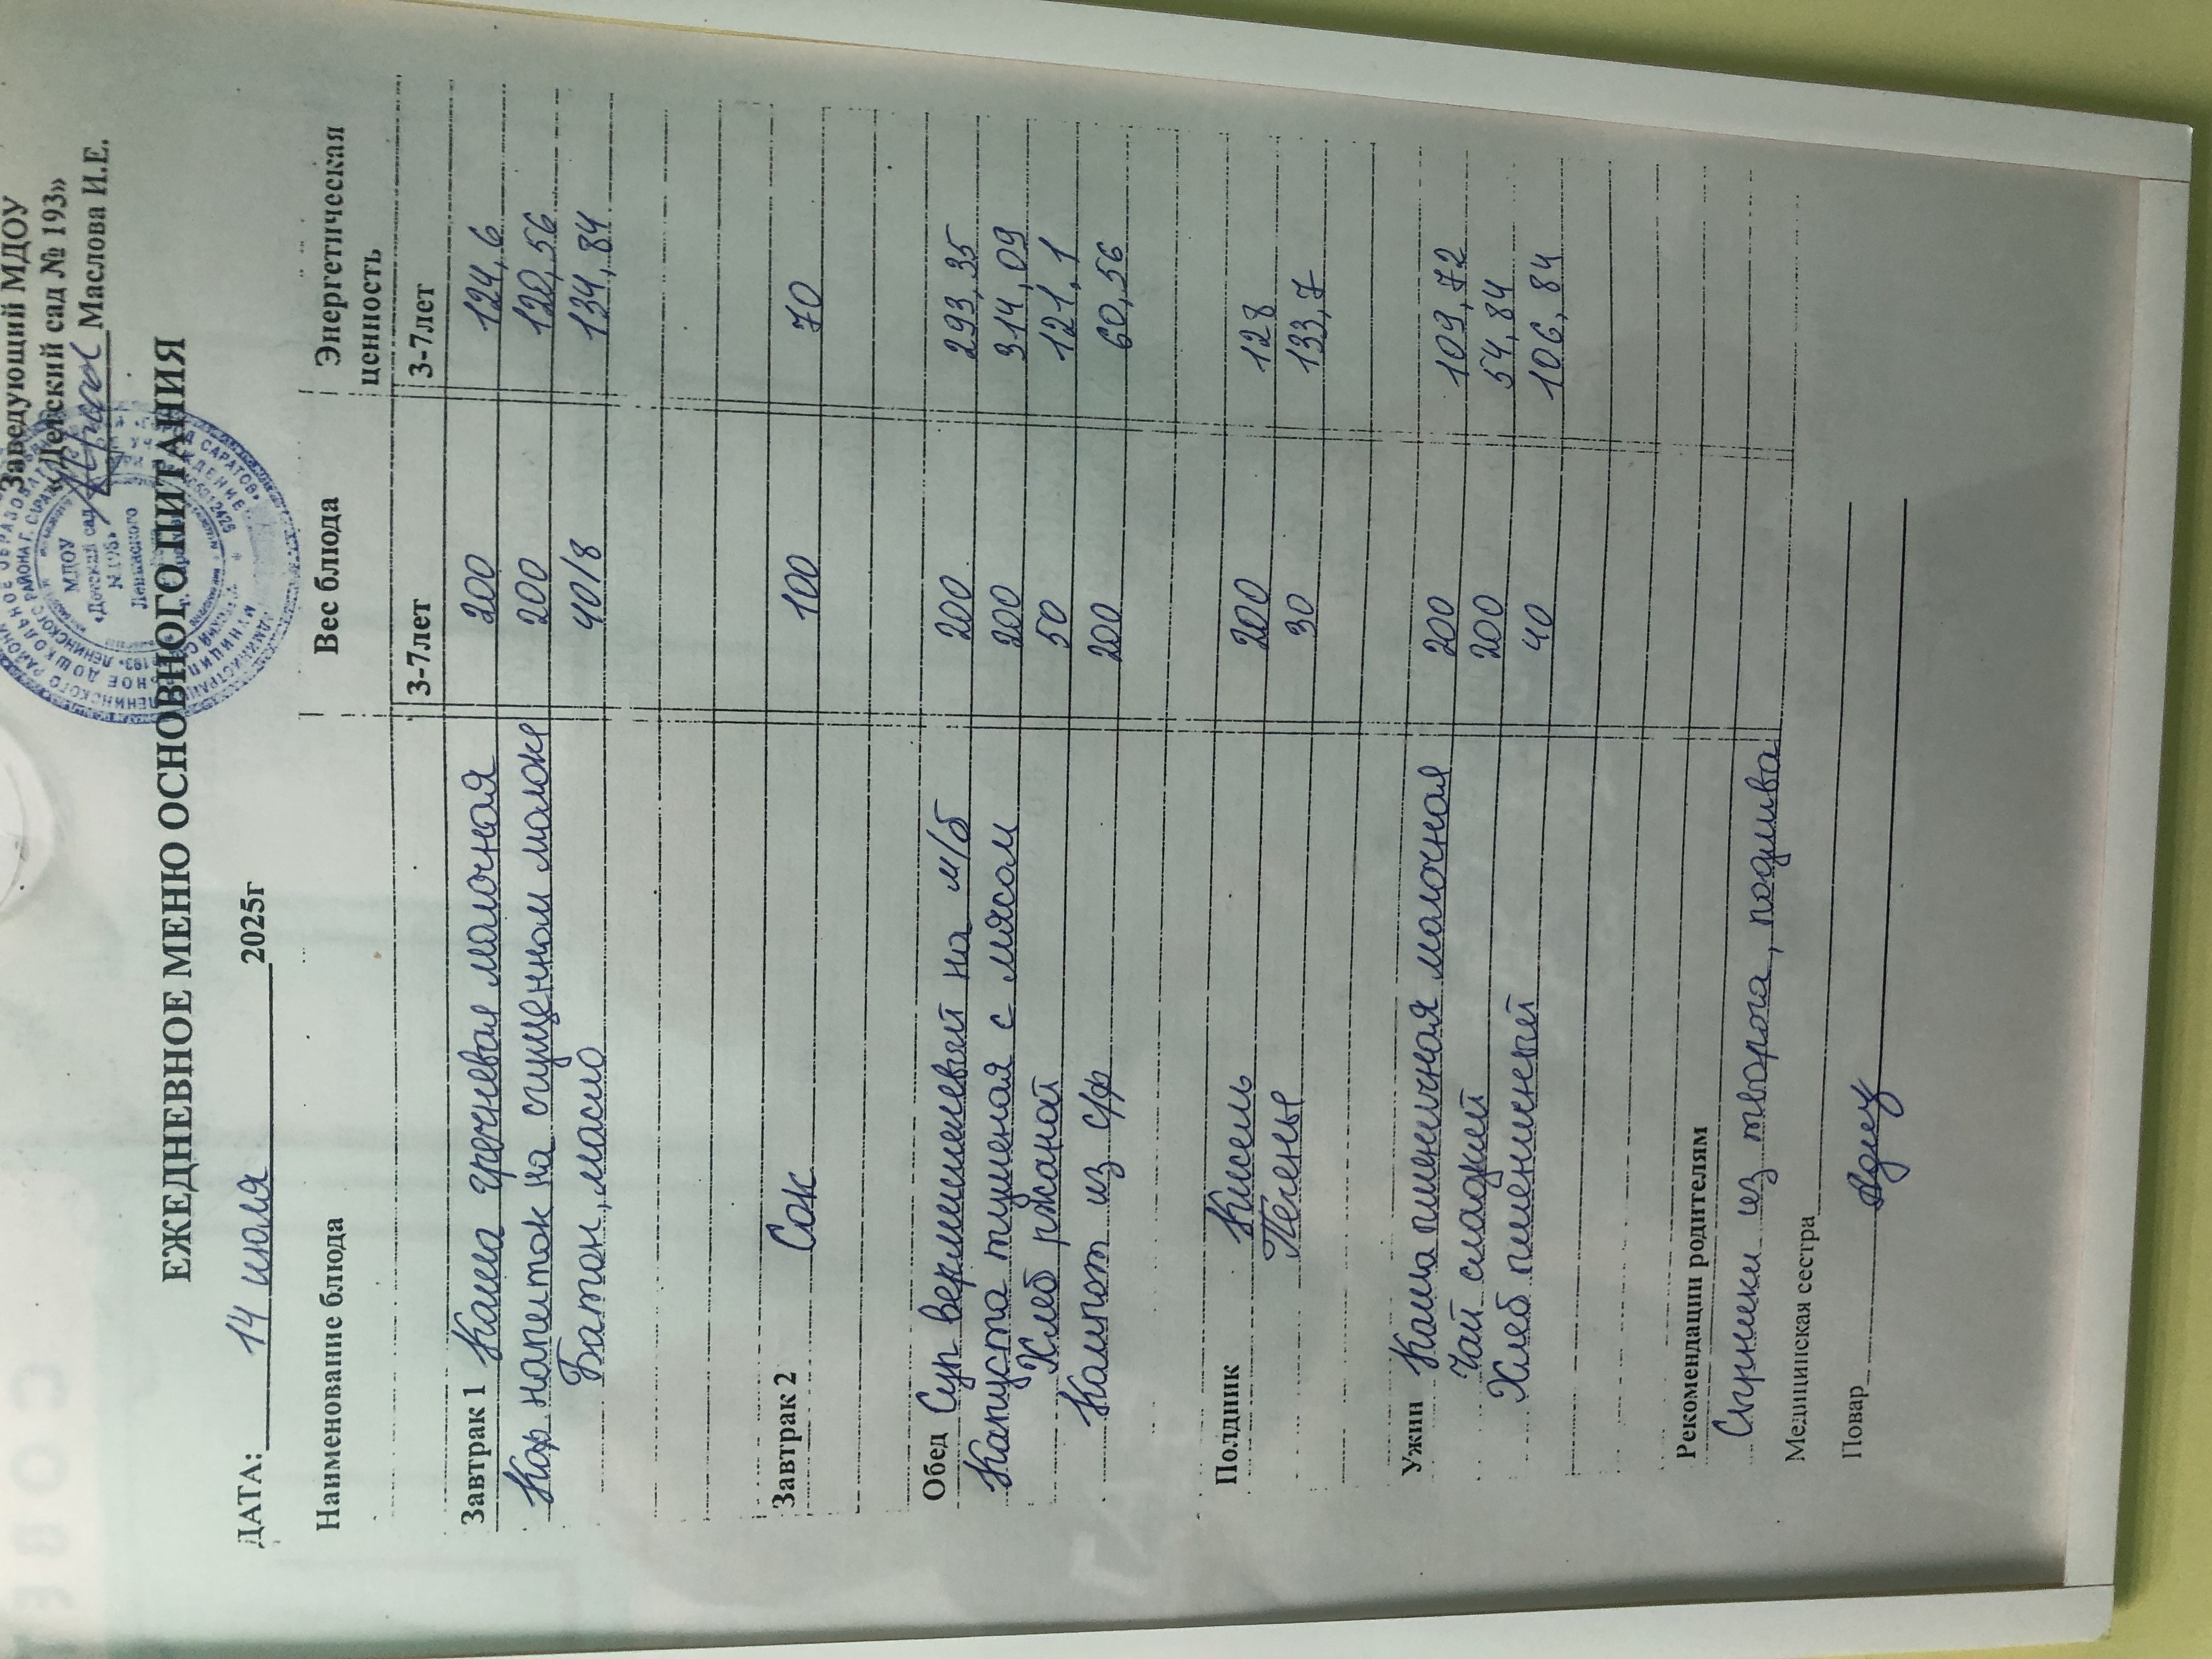 Заведующий МДОУ
«Детский сад № 193»
Маслова И.Е.
МДОУ
«Детский сад
№193»
Ленинского
ЕЖЕДНЕВНОЕ МЕНЮ ОСНОВНОГО ПИТАНИЯ
ДАТА: 14 июля 2025г
Наименование блюда Вес блюда Энергетическая ценность
3-7лет 3-7лет
Завтрак 1 Каша гречневая молочная 200 124,6
Коф напиток на сгущенном молоке 200 120,56
Батон, масло 40/8 134,84
Завтрак 2 Сок 100 70
Обед Суп вермишелевый на м/б 200 293,35
Капуста тушеная с мясом 200 314,09
Хлеб ржаной 50 121,1
Компот из с/ф 200 60,56
Полдник Кисель 200 128
Печенье 30 133,7
Ужин Каша пшеничная молочная 200 109,72
Чай сладкий 200 54,84
Хлеб пшеничный 40 106,84
Рекомендации родителям
Сырники из творога, подлива
Медицинская сестра
Повар